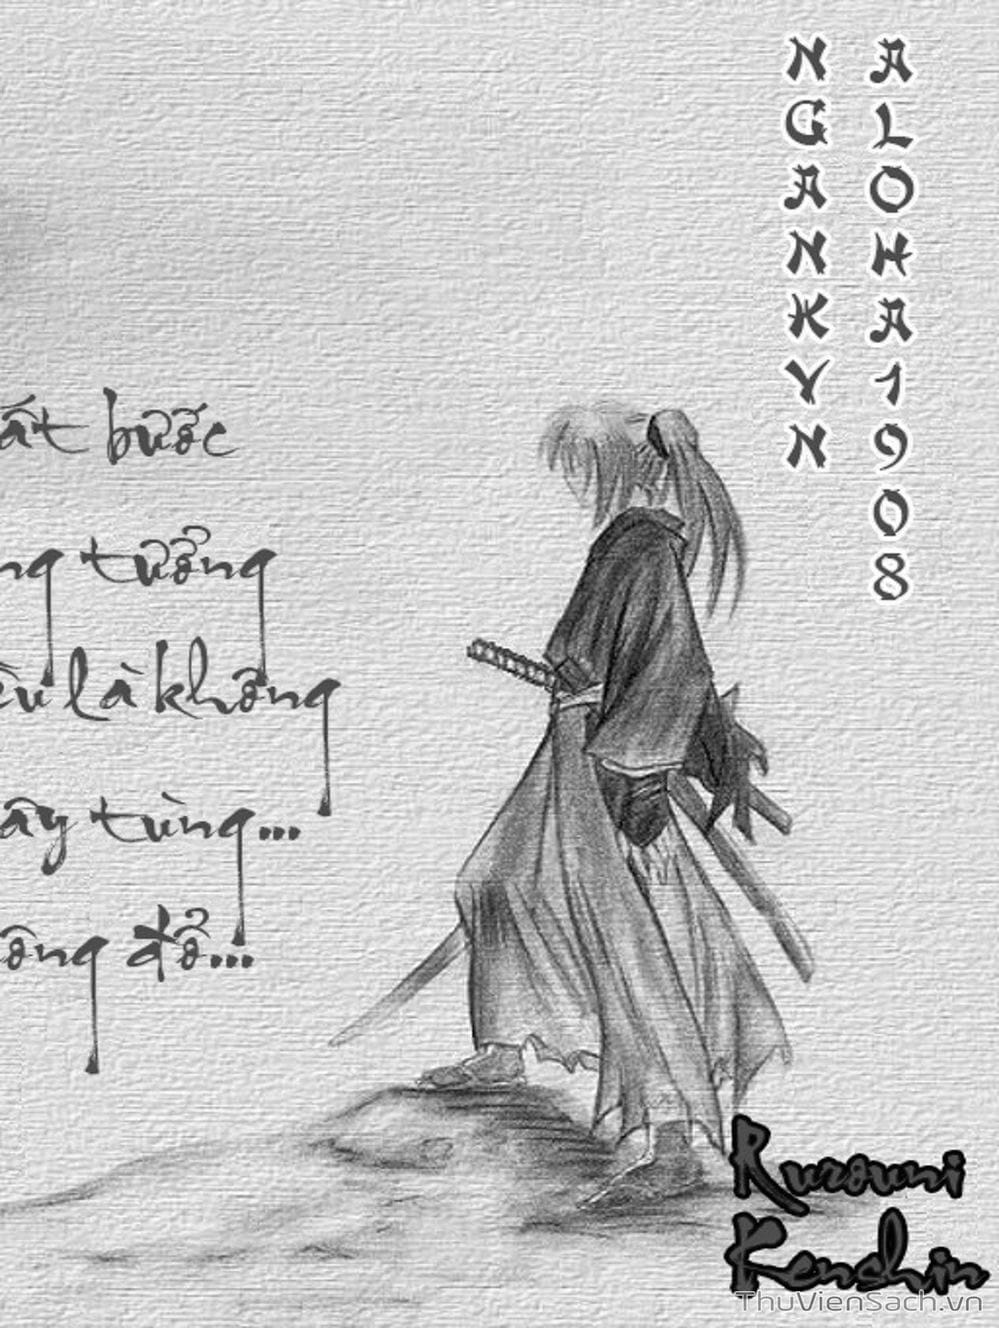 NGANKYN
ALOHA1908
ất bước
ng tưởng
ều là không
ây từng...
ông đổ...
Rurouni
Kenshin
ThuVienSach.vn